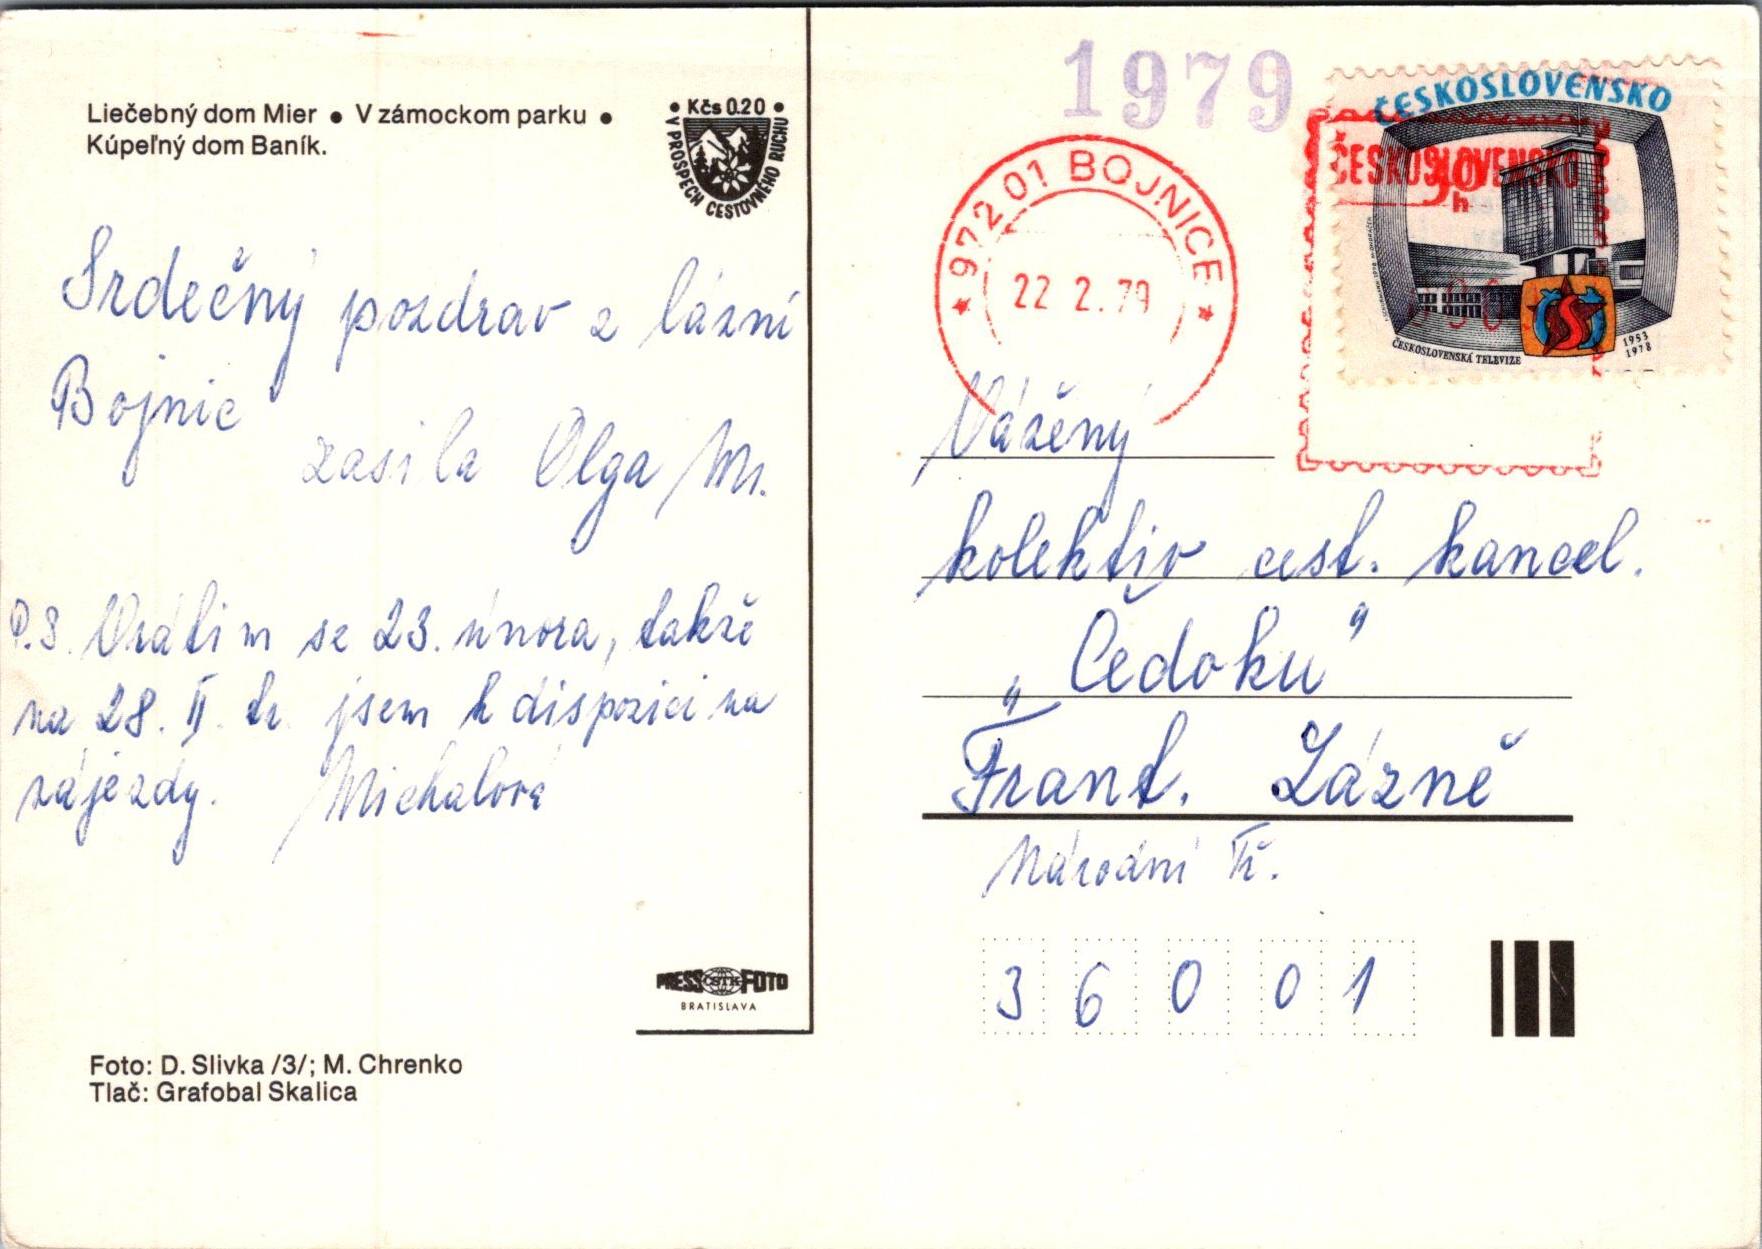 Liečebný dom Mier ● V zámockom parku ●
Kúpeľný dom Baník.
● Kčs 0.20 ●
V PROSPECH CESTOVNÉHO RUCHU
Srdečný pozdrav z lázní
Bojnic
zasílá Olga M.
P.S. Vrátím se 23. února, takže
na 28. II. tr. jsem k dispozici na
zájezdy. Michalová
PRESS ČSTK FOTO
BRATISLAVA
Foto: D. Slivka /3/; M. Chrenko
Tlač: Grafobal Skalica
1979
★ 972 01 BOJNICE ★
22 2.79
ČESKOSLOVENSKO
ČESKOSLOVENSKO
h
ČESKOSLOVENSKÁ TELEVIZE
1953
1978
Vážený
kolektiv cest. kancel.
„Čedoku"
Frant. Lázně
Národní Tř.
36001